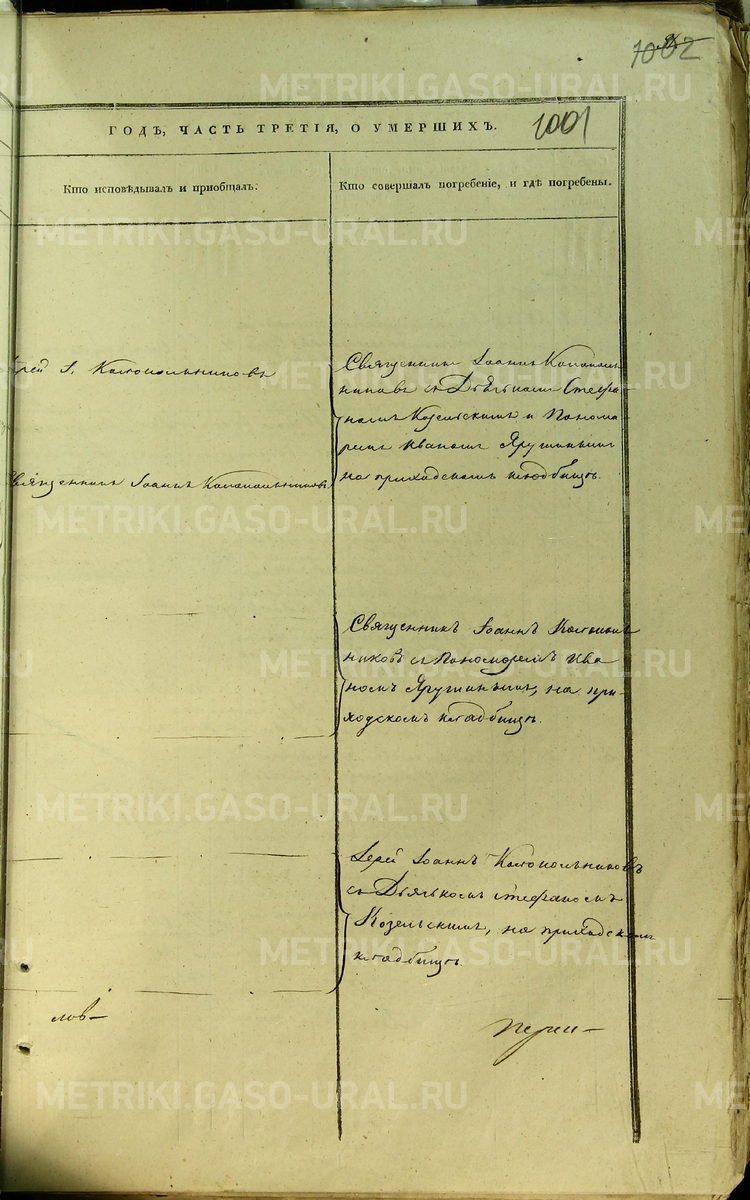 1002
ГОДЪ, ЧАСТЬ ТРЕТІЯ, О УМЕРШИХЪ.
1001
Кто исповѣдывалъ и приобщалъ.
Кто совершалъ погребеніе, и гдѣ погребены.
ерей І. Колокольниковъ
Священникъ Іоаннъ Колоколь
никовъ съ Дьячкомъ Стефа
номъ Козельскимъ и Понома
ремъ Иваномъ Ярушинымъ
на приходскомъ кладбищѣ.
Священникъ Іоаннъ Колокольниковъ
Священникъ Іоаннъ Колоколь
никовъ съ Пономаремъ Ива
номъ Ярушинымъ, на при-
ходскомъ кладбищѣ.
Іерей Іоаннъ Колокольниковъ
съ Дьячкомъ Стефаномъ
Козельскимъ, на приходскомъ
кладбищѣ.
лов-
METRIKI.GASO-URAL.RU